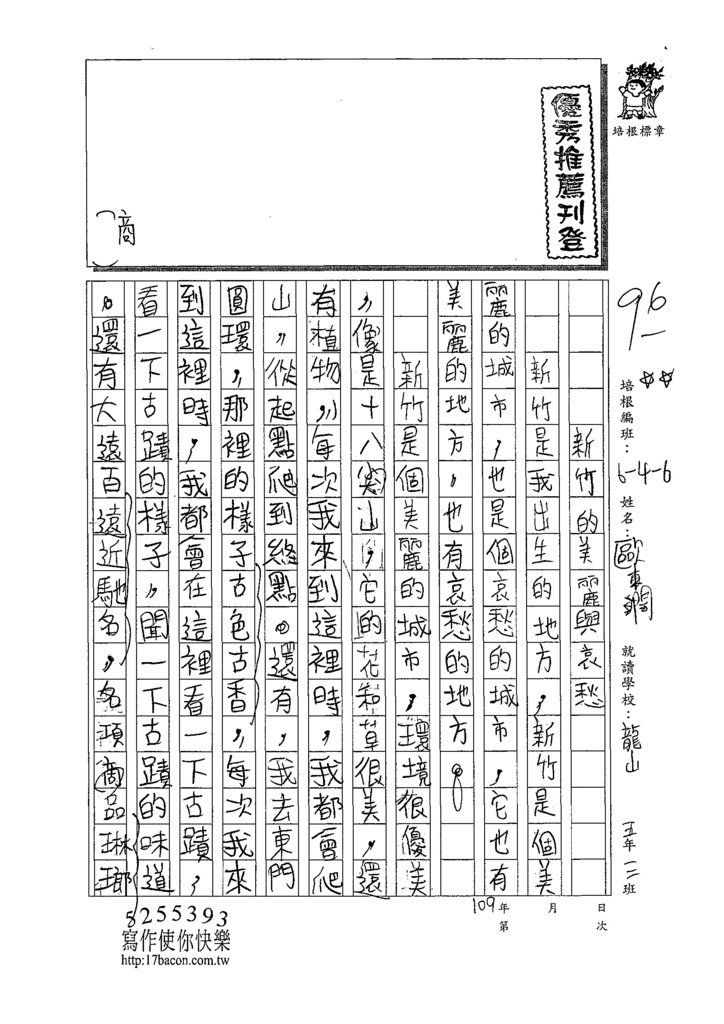 培根標章
優秀推薦刊登
(商)
96
培根編班：6-4-6
姓名：歐東
就讀學校：龍山
五年一二班
新竹的美麗與哀愁
新竹是我出生的地方，新竹是個美
麗的城市，也是個哀愁的城市，它也有
美麗的地方，也有哀愁的地方。
新竹是個美麗的城市，環境很優美
，像是十八尖山，它的花和草很美，還
有植物，每次我來到這裡時，我都會爬
山，從起點爬到終點。還有，我去東門
圓環，那裡的樣子古色古香，每次我來
到這裡時，我都會在這裡看一下古蹟，
看一下古蹟的樣子，聞一下古蹟的味道
。還有大遠百遠近馳名，各項商品琳瑯
109年 月 日
第 次
5255393
寫作使你快樂
http:17bacon.com.tw